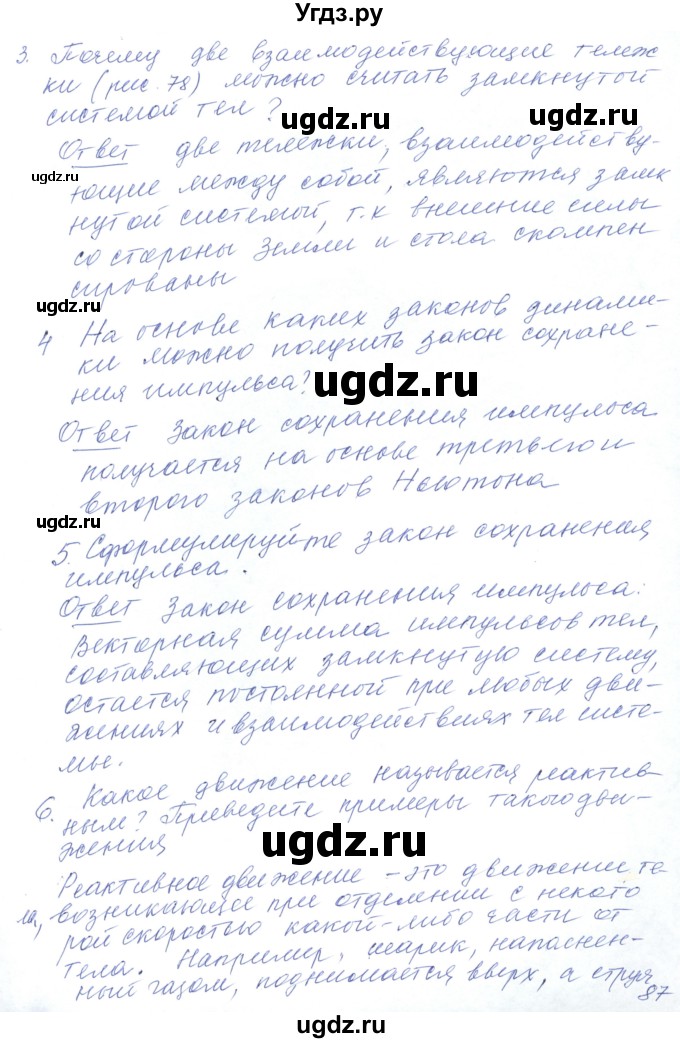 Угдз.ру
3. Почему две взаимодействующие тележ
ки (рис. 78) можно считать замкнутой
системой тел?
ugdz.ru ugdz.ru
Ответ две тележки, взаимодейству-
ugdz.ru
ющие между собой, являются замк
нутой системой, т.к внешние силы
со стороны Земли и стола скомпен
сированы
ugdz.ru
4 На основе каких законов динами-
ки можно получить закон сохране-
ния импульса?
ugdz.ru
Ответ Закон сохранения импульса
получается на основе третьего и
второго законов Ньютона
ugdz.ru
5. Сформулируйте закон сохранения
импульса.
ugdz.ru ugdz.ru
Ответ Закон сохранения импульса:
Векторная сумма импульсов тел,
составляющих замкнутую систему,
остается постоянной при любых дви-
жениях и взаимодействиях тел систе-
мы.
6. Какое движение называется реактив
ным? Приведите примеры такого дви-
жения
ugdz.ru
Реактивное движение - это движение те
ла, возникающее при отделении с некото
рой скоростью какой-либо части от
тела. Например, шарик, напаснен-
ный газом, поднимается вверх, а струя
87
ugdz.ru
ugdz.ru